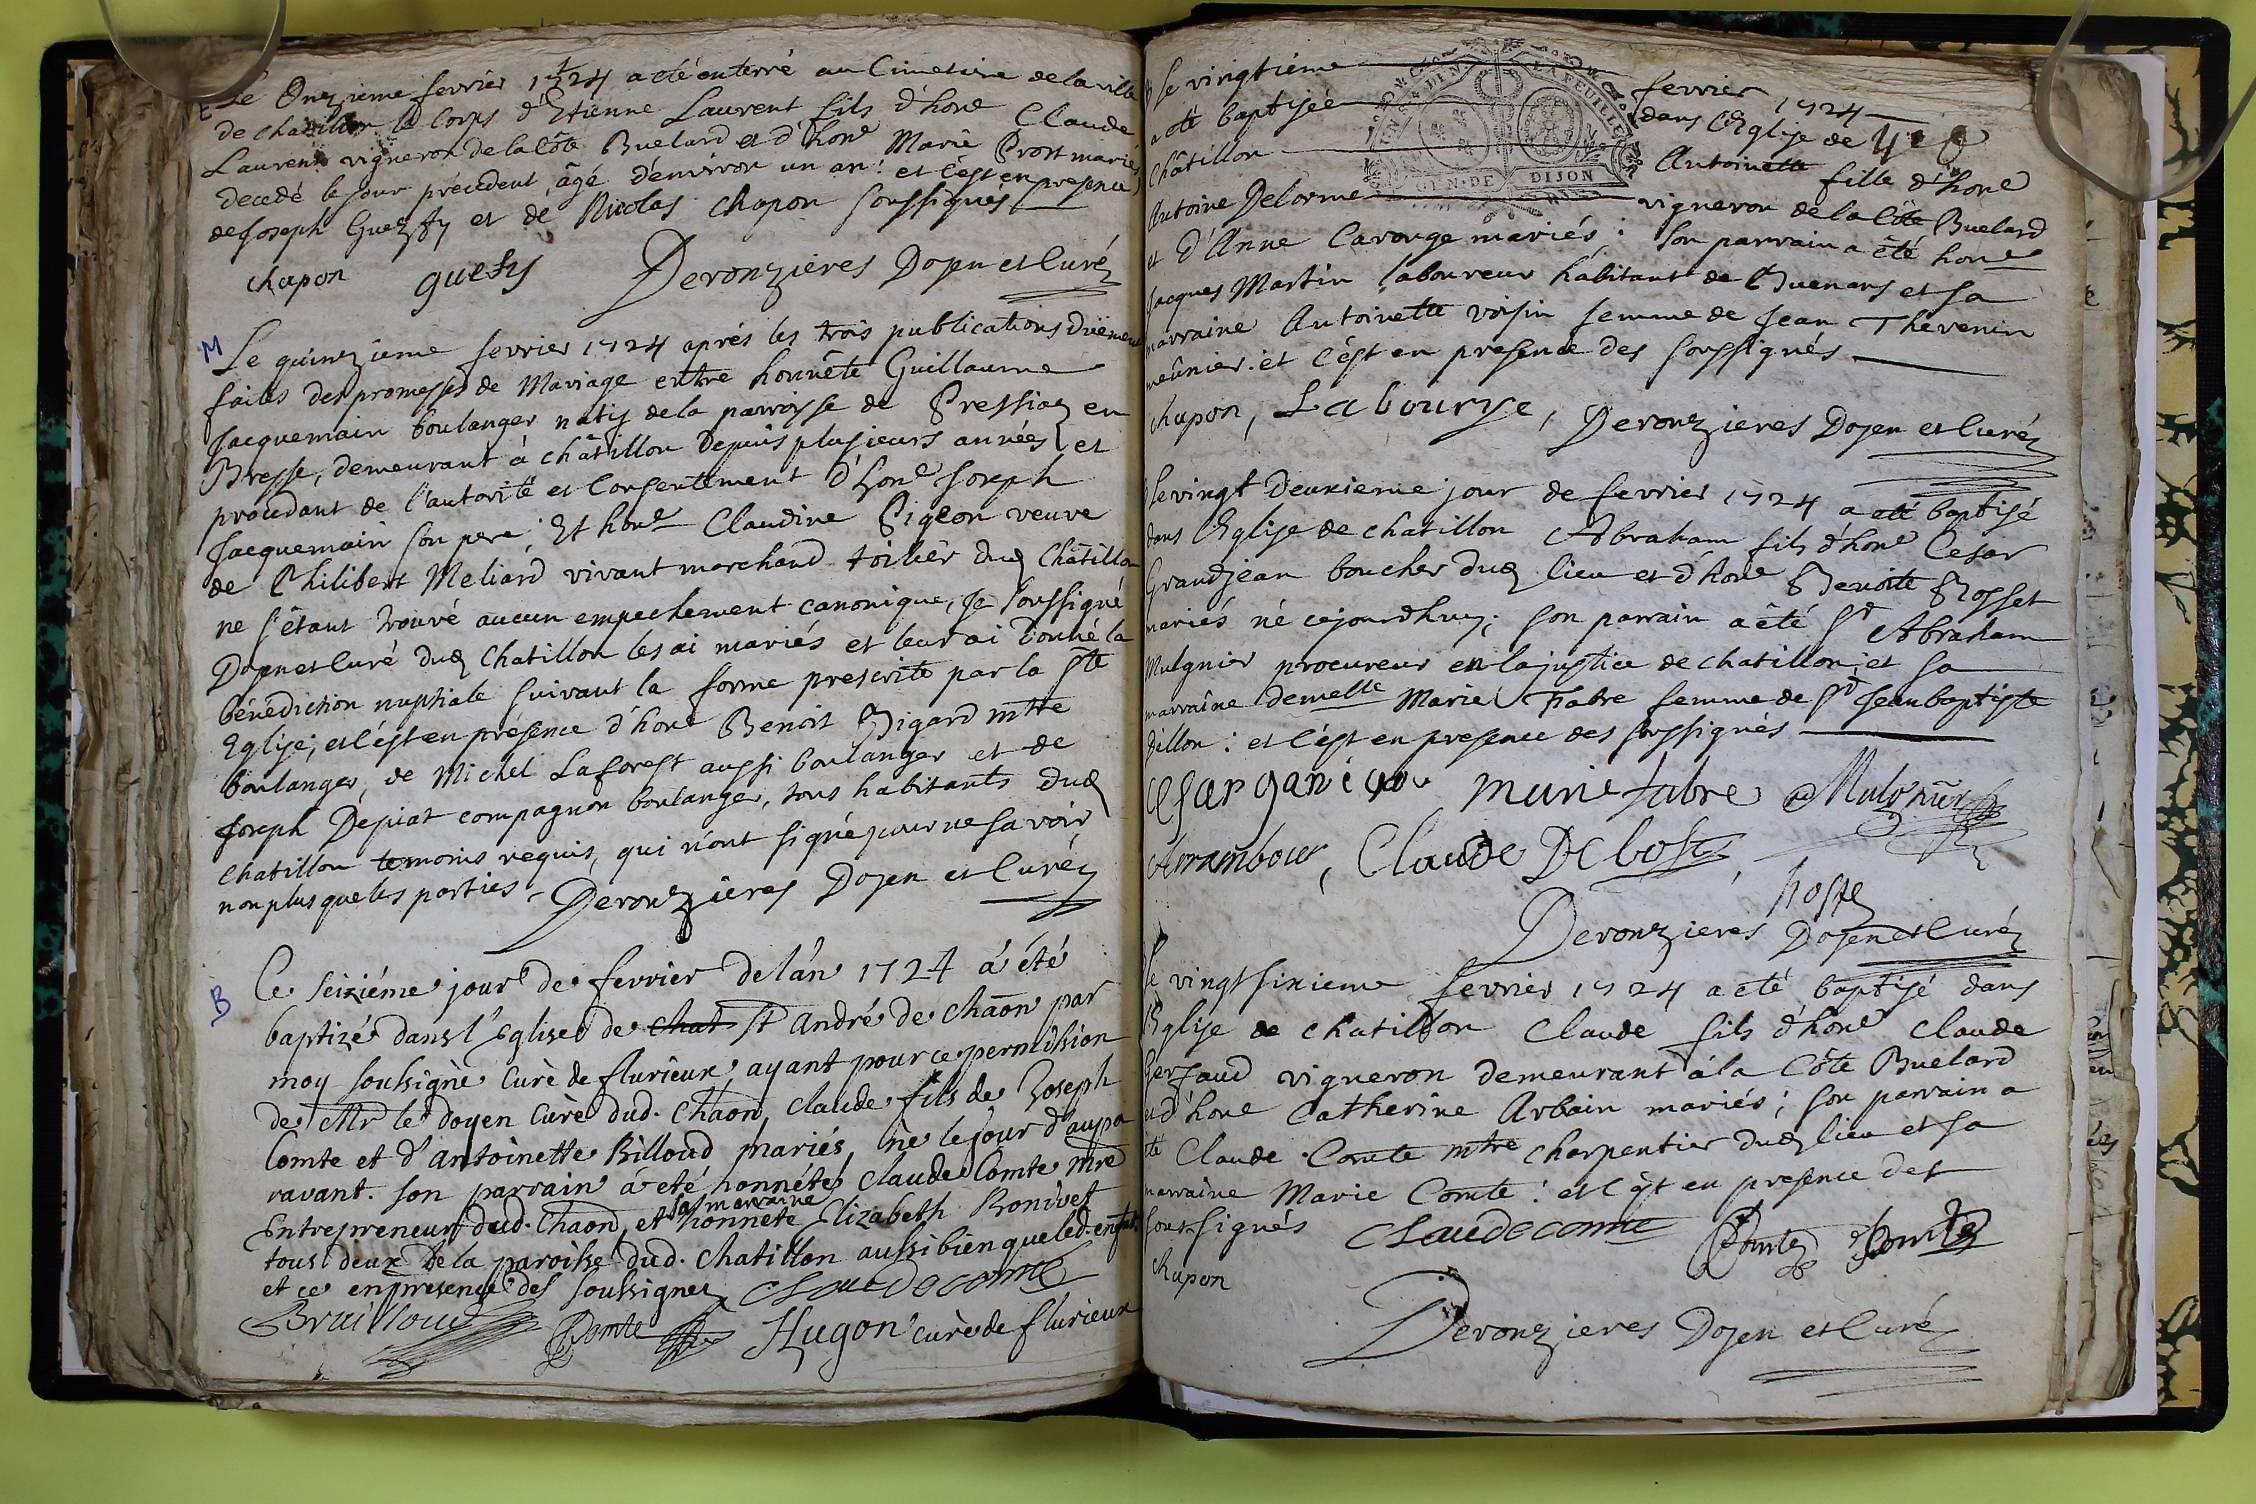 E
Le Onzieme fevrier 1724 a eté enterré au Cimetiere de la ville
de chatillon le Corps d'Etienne Laurent fils d'hone Claude
Laurent vigneron de la Côte Buelard et d'hone Marie Prost mariés
decedé le jour précedent, âgé d'environ un an: et c'est en presence
de Joseph Guezfy et de Nicolas chapon soussignés
chapon guesfy Deronzieres Doyen et Curé
M
Le quinzieme fevrier 1724 aprés les trois publications duëment
faites des promesses de Mariage entre honnête Guillaume
Jacquemain boulanger natif de la parroisse de Pressiaz en
Bresse, demeurant à châtillon depuis plusieurs années, et
procedant de l'autorité et Consentement d'hone Joseph
Jacquemain son pere: Et hone Claudine Pigeon veuve
de Philibert Meliard vivant marchand toilier dud Châtillon
ne s'étant trouvé aucun empechement canonique, Je soussigné
Doyen et Curé dud Chatillon les ai mariés et leur ai donné la
bénédiction nuptiale suivant la forme prescrite par la Ste
Eglise; et c'est en présence d'hone Benoit Bigard mtre
boulanger, de Michel Laforest aussi boulanger et de
Joseph Depiat compagnon boulanger, tous habitants dud
chatillon temoins requis, qui n'ont signé pour ne savoir
non plus que les parties Deronzieres Doyen et Curé
B
Ce seiziéme jour de fevrier de l'an 1724 á été
baptizé dans l'Eglise de chat St André de chaon par
moy soussigné Curé de flurieux, ayant pour ce permission
de Mr le doyen Curé dud. Chaon, claude fils de Joseph
Comte et d'antoinette Billoud mariés, né le jour d'aupa
ravant. son parrain á eté honnéte claude Comte mre
sa marraine
Entrepreneur dud. Chaon, et honnéte Elizabeth Bonivet
tous deux de la paroisse dud. chatillon aussi bien que led. enfant
et ce en presence des soussignez claude comte
Bruilloud Comte Hugon curé de flurieux
Le vingtieme fevrier 1724
a eté baptisée dans l'Eglise de
Châtillon Antoinette fille d'hone
Antoine Delorme vigneron de la Côte Buelard
et d'Anne Carouge mariés: son parrain a êté hone
Jacques Martin laboureur habitant de Buenans et sa
marraine Antoinette voisin femme de Jean Thevenin
meûnier: et c'est en presence des soussignés
GEN. DE DIJON
LA FEUILLE
chapon, Labourye, Deronzieres Doyen et Curé
Le vingt Deuxieme jour de fevrier 1724 a eté baptisé
dans l'Eglise de chatillon Abraham fils d'hone Cesar
Grandjean boucher dud lieu et d'hone Benoite Rosset
mariés né cejourdhuy; son parrain a êté Sr Abraham
Mulgnier procureur en la justice de chatillon: et sa
marraine demelle Marie Fabre femme de Sr Jean baptiste
Dillon: et c'est en presence des soussignés
marie fabre Mulgnier
Arrambour, Claude Debost,
hoste
Deronzieres Doyen et Curé
Le vingt sixieme fevrier 1724 a eté baptisé dans
l'Eglise de chatillon Claude fils d'hone claude
Gerfaud vigneron demeurant à la Côte Buelard
et d'hone Catherine Arbain mariés; son parrain a
été Claude Comte mtre charpentier dud lieu et sa
marraine Marie Comte: et c'est en presence des
soussignés claude comte Comte Comte
chapon
Deronzieres Doyen et Curé